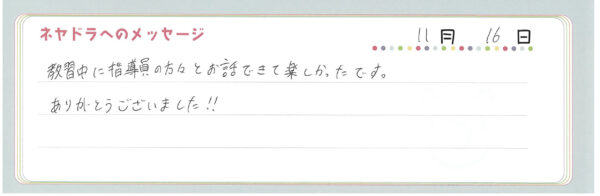 ネヤドラへのメッセージ 11月 16日
教習中に指導員の方々とお話できて楽しかったです。
ありがとうございました!!